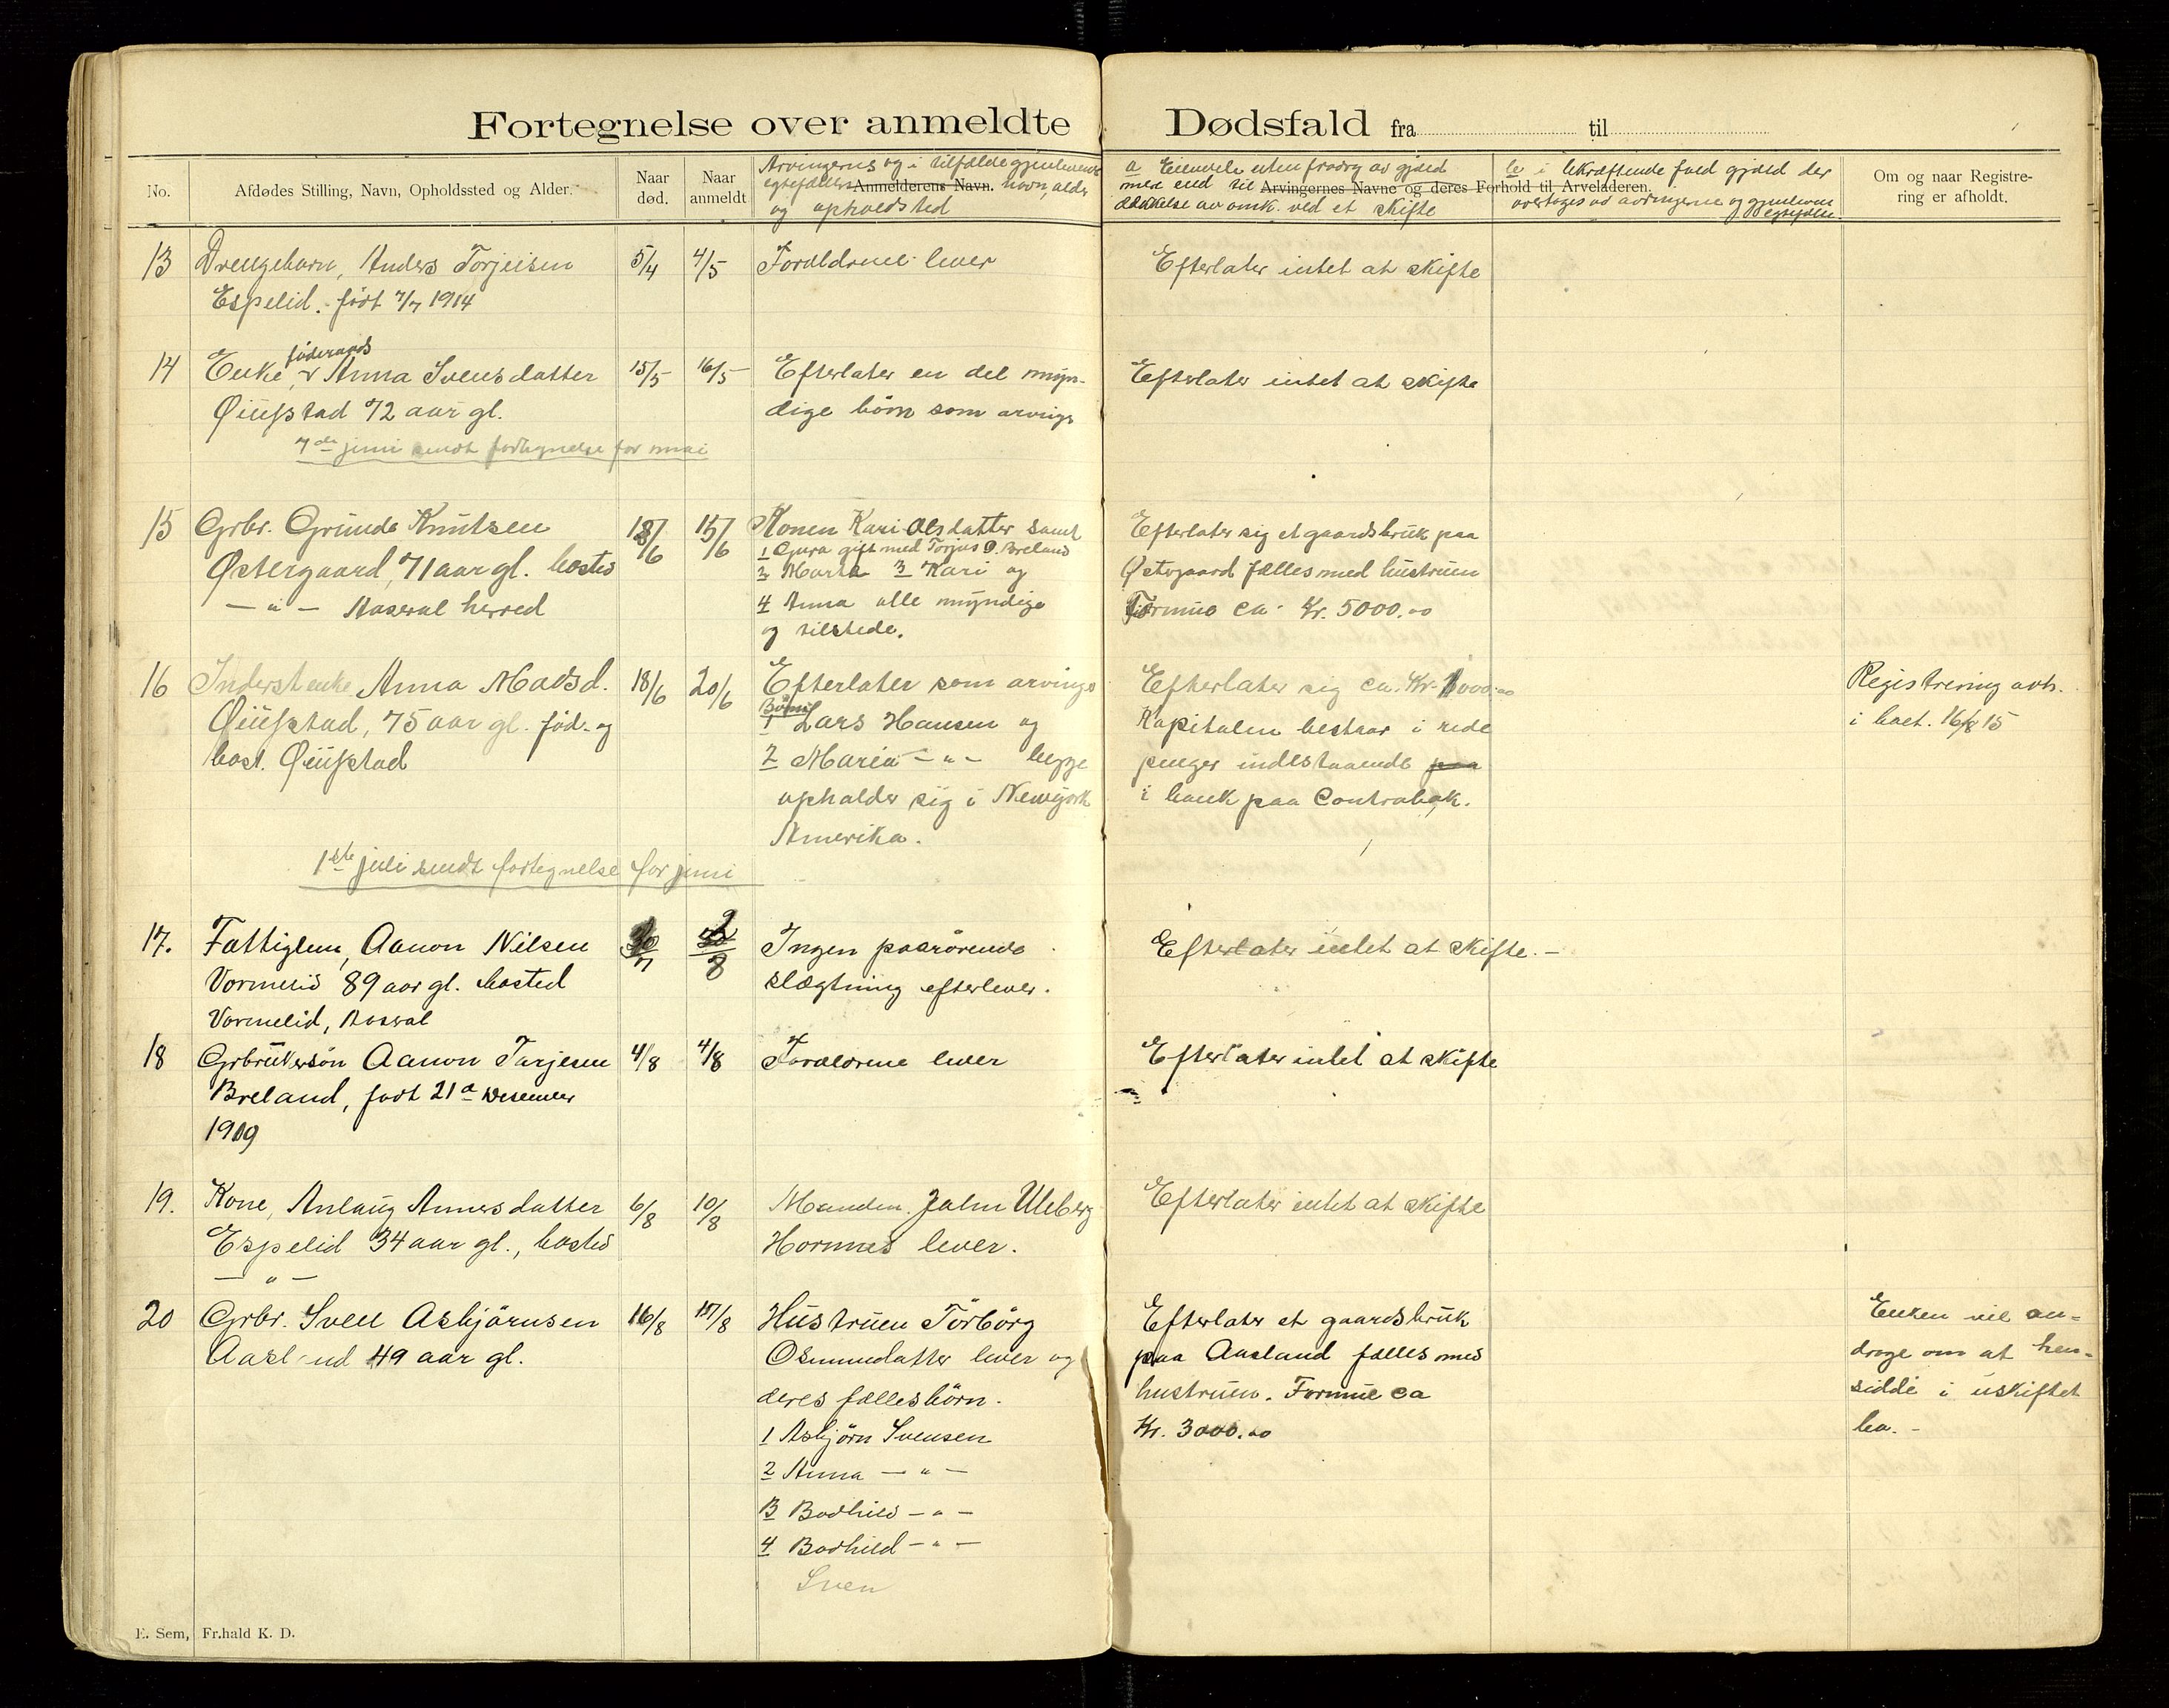 Fortegnelse over anmeldte Dødsfald fra til
No.
Afdødes Stilling, Navn, Opholdssted og Alder.
Naar død.
Naar anmeldt
Arvingerns og i tilfælde gjenlevende
egtefælles Anmelderens Navn. navn, alder
og opholdsted
a Eiendele uten fradrag av gjæld
mere end til Arvingernes Navne og deres Forhold til Arveladeren.
dækkelse av omk. ved et skifte
b i bekræftende fald gjæld der
overtages av arvingerne og gjenlevende
egtefælle
Om og naar Registre-
ring er afholdt.
13 Drengebarn, Anders Torjeisen 5/4 4/5 Foraldrene lever Efterlater intet at skifte
Espelid. født 7/7 1914
føderaads
14 Enke, v Anna Svensdatter 15/5 16/5 Efterlater en del myn- Efterlater intet at skifte
Øiufstad 72 aar gl. dige børn som arvinge
7de juni sendt fortegnelse for mai
15 Grbr. Grunde Knutsen 18/6 15/6 Konen Kari Olsdatter samt Efterlater sig et gaardsbruk paa
1 Gura gift med Torjus O. Breland
Østergaard, 71 aar gl. bosted 2 Marta 3 Kari og Østergaard fælles med hustruen
— " — Aaseral herred 4 Anna alle myndige Formue ca. Kr. 5000.00
og tilstede.
16 Inderstenke Anna Madsd. 18/6 20/6 Efterlater som arvinge Efterlater sig ca. Kr. 1000.00 Registrering avh.
Børn
Øiufstad, 75 aar gl. fød. og 1 Lars Hansen og Kapitalen bestaar i rede i boet. 16/8 15
bost. Øiufstad 2 Maria — " — begge penger indestaaende paa
opholder sig i Newyork i bank paa Contrabok.
Amerika.
1ste juli sendt fortegnelse for juni
17. Fattiglem, Aanon Nilsen 30/7 2/8 Ingen paarørende Efterlater intet at skifte. —
Vormelid 89 aar gl. bosted slægtning efterlever.
Vormelid, Aaseral
18 Grbrukersøn Aanon Tarjesen 4/8 4/8 Forældrene lever Efterlater intet at skifte
Breland, født 21a Desember
1909
19. Kone, Anlaug Annersdatter 6/8 10/8 Manden. Jahn Uleberg Efterlater intet at skifte
Espelid 34 aar gl., bosted Hornnes lever.
— " —
20 Grbr. Sven Asbjørnsen 16/8 17/8 Hustruen Torborg Efterlater et gaardsbruk Enken vil an-
Aasland 49 aar gl. Osmundatter lever og paa Aasland fælles med drage om at hen-
deres fælles børn. hustruen. Formue ca sidde i uskiftet
1 Asbjørn Svensen Kr. 3000.00 bo. -
2 Anna — " —
3 Bodhild — " —
4 Bodhild — " —
Sven
E. Sem, Fr.hald K. D.